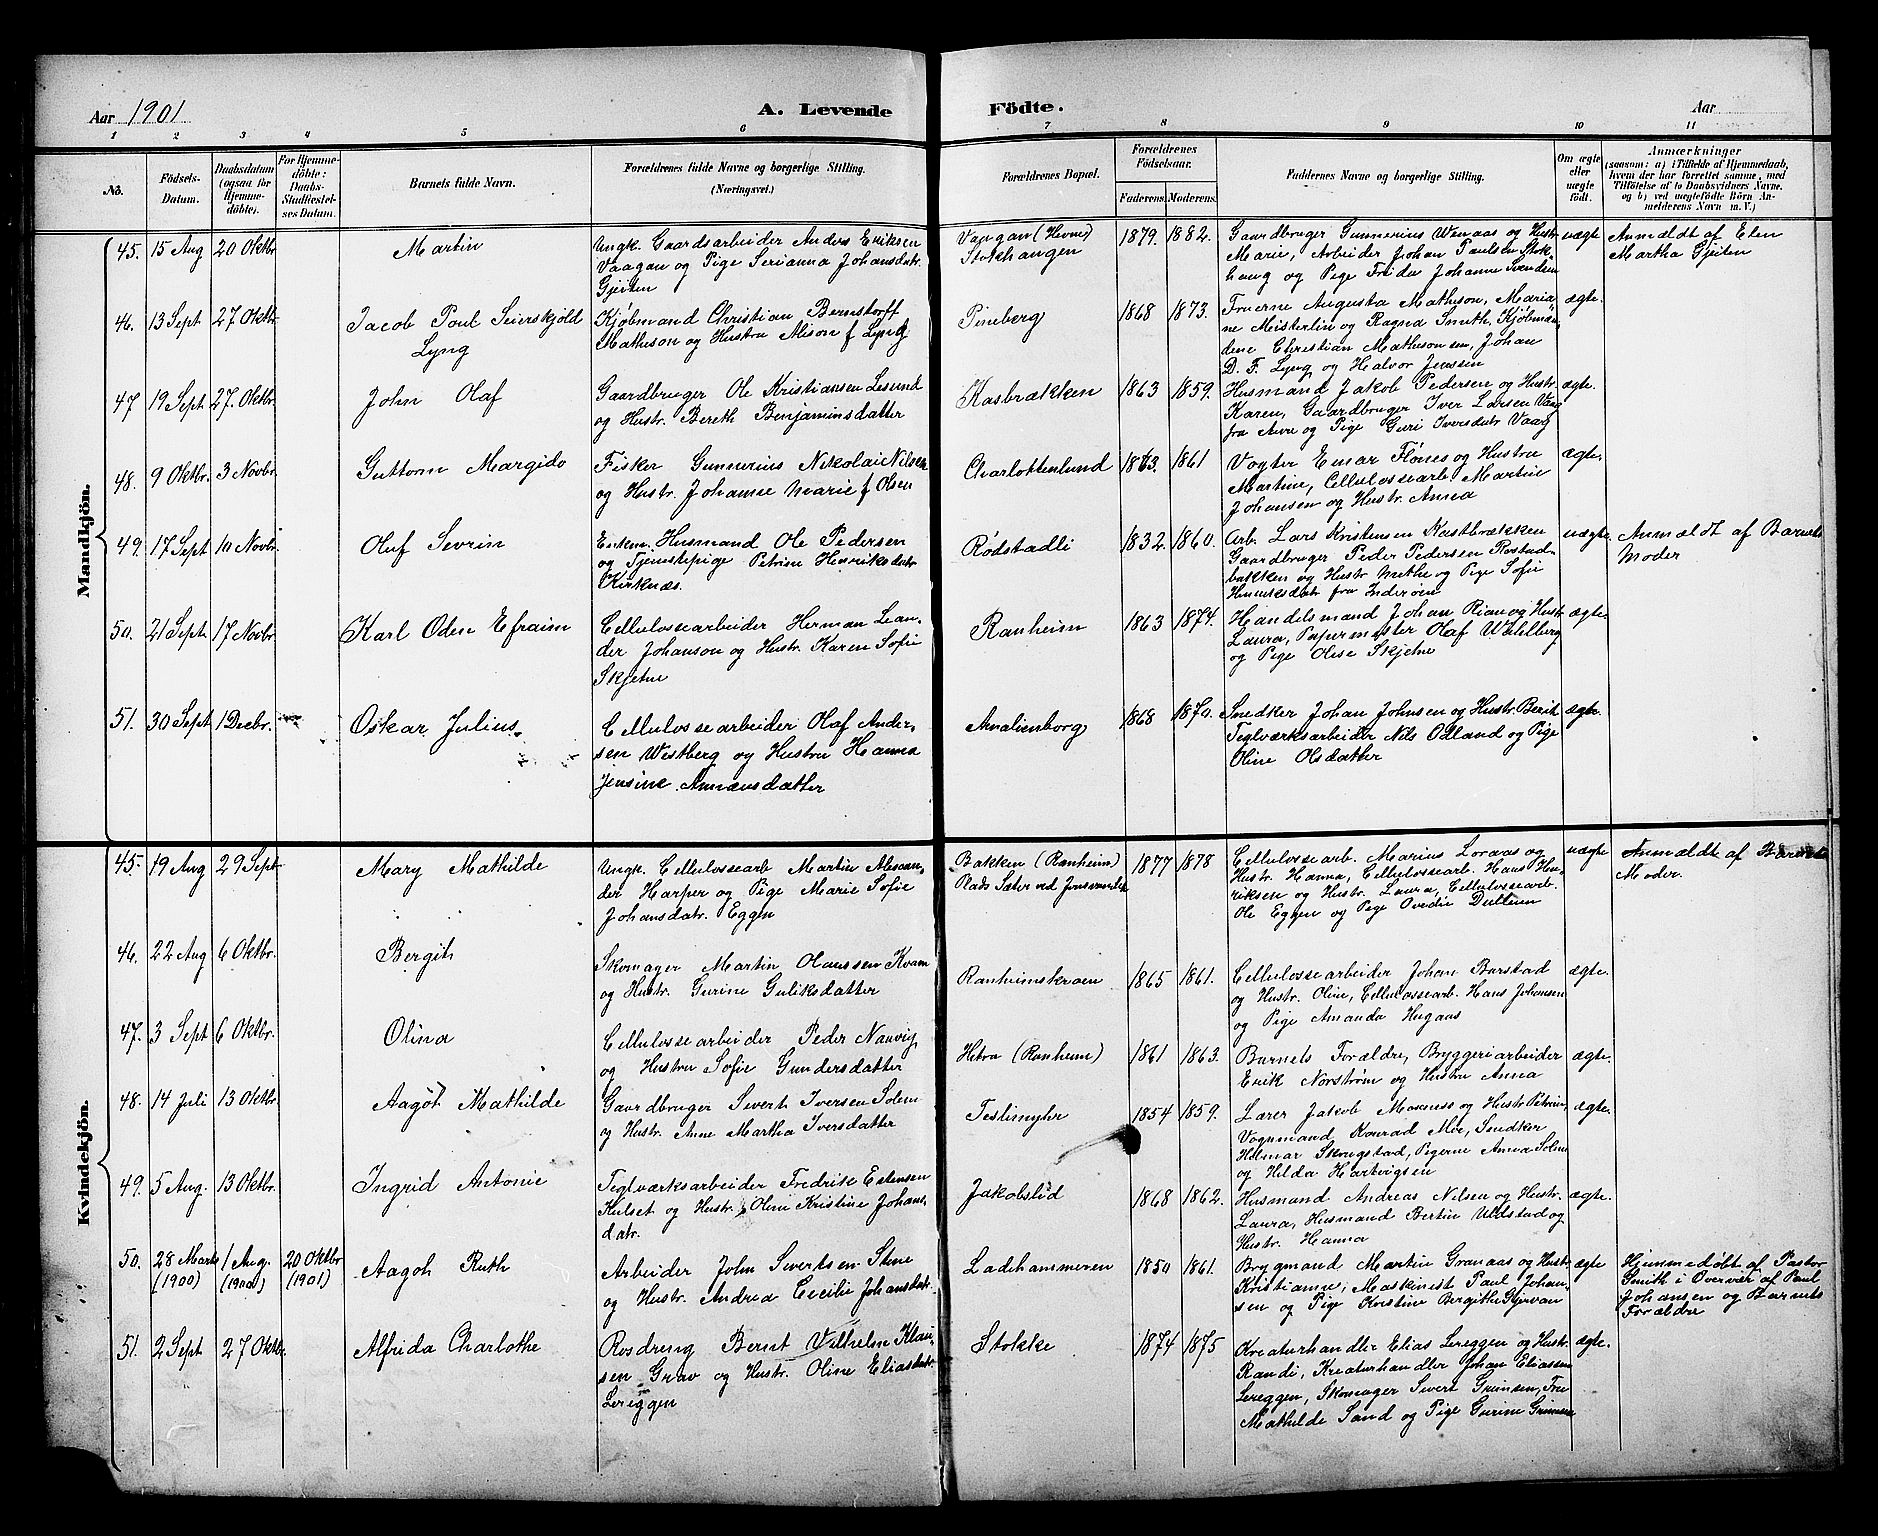 Aar 1901 A. Levende Födte. Aar
1 2 3 4 5 6 7 8 9 10 11
No. Födsels-Datum. Daabsdatum (ogsaa for Hjemmedöbte). For Hjemmedöbte: Daabs-Stadfæstelses Datum. Barnets fulde Navn. Forældrenes fulde Navne og borgerlige Stilling. (Næringsvei.) Forældrenes Bopæl. Forældrenes Födselsaar. Faderens. Moderens. Faddernes Navne og borgerlige Stilling. Om ægte eller uægte födt. Anmærkninger (saasom: a) i Tilfælde af Hjemmedaab, hvem der har forrettet samme, med Tilföielse af to Daabsvidners Navne, og b) ved uægtefödte Börn Anmelderens Navn m. V.)
Mandkjön.
45. 15 Aug 20 Oktbr Martin
Ungk. Gaardsarbeider Anders Eriksen
Vaagan og Pige Serianna Johansdatr.
Gjeiten
Vaagan (Hevne)
Stokhaugen
1879. 1882.
Gaardbruger Gunnerius Wenaas og Hustr.
Marie, Arbeider Johan Paulsen Stok-
haug og Pige Frida Johanne Svendsen
uægte
Anmeldt af Elen
Martha Gjeiten
46. 13 Sept 27 Oktbr Jacob Poul Seierskjöld
Lyng
Kjøbmand Christian Bernstorff
Matheson og Hustru Alison f Lyng
Pineberg
1868 1873.
Fruerne Augusta Matheson, Maria-
ne Meisterlin og Ragna Smith, Kjøbmæn-
dene Christian Mathesonsen, Johan
D. F. Lyng og Halvor Jenssen
ægte.
47 19 Sept 27. Oktbr. John Olaf
Gaardbruger Ole Kristiansen Lesund
og Hustr. Bereth Benjaminsdatter
Kasbrækken
1863 1859.
Husmand Jakob Pedersen og Hustr.
Karen, Gaardbruger Iver Larsen Vaag
fra Aure og Pige Guri Iversdatr Vaag
ægte.
48. 9 Oktbr. 3 Novbr. Guttorm Margido
Fisker Gunnerius Nikolai Nilsen
og Hustr. Johanne Marie f Olsen
Charlottenlund
1863. 1861
Vogter Einar Flönes og Hustru
Martine, Cellulossearb Martin
Johansen og Hustr. Anna
ægte.
49. 17 Sept 10 Novbr. Oluf Sevrin
Enkem. Husmand Ole Pedersen
og Tjenestepige Petrine Henriksdatr
Kirknæs.
Rødstadli
1832. 1860.
Arb. Lars Kristensen Kastbrækken
Gaardbruger Peder Pedersen Rostad-
bakken og Hustr Methe og Pige Sofie
Henriksdatr fra Inderøen
uægte.
Anmeldt af Barnets
Moder
50. 21 Sept 17 Novbr. Karl Oden Efraim
Cellulossearbeider Herman Lean-
der Johanson og Hustr. Karen Sofie
Skjetne
Ranheim
1863 1874.
Handelsmand Johan Rian og Hustr
Laura, Papermester Olaf Wahlberg
og Pige Olise Skjetne
ægte.
51. 30 Sept 1 Decbr. Oskar Julius.
Cellulossearbeider Olaf Ander-
sen Westberg og Hustru Hanna
Jensine Annænsdatter
Amalienborg
1868 1870.
Snedker Johan Johnsen og Hustr. Berit
Teglværksarbeider Nils Odland og Pige
Oline Olsdatter
ægte.
Kvindekjön.
45. 19 Aug 29 Sept. Mary Mathilde
Ungk. Cellulossearb Martin Alexan-
der Harper og Pige Marie Sofie
Johansdatr. Eggen
Bakken (Ranheim)
1877 1878
Cellulossearb. Marius Loraas og
Hustr. Hanna, Cellulossearb. Hans Hen-
riksen og Hustr. Laura, Cellulossearb.
Ole Eggen og Pige Ovedie
uægte
Anmeldt af Barnets
Moder.
46. 22 Aug 6 Oktbr. Bergith
Skomager Martin Olaussen Kvam
og Hustr. Gurine Guliksdatter
Ranheimskroen
1865 1861.
Cellulossearbeider Johan Barstad
og Hustr. Oline, Cellulossearb. Hans Johansen
og Pige Amanda Hugaas
ægte.
47. 3 Sept 6 Oktbr. Olina
Cellulossearbeider Peder Nauvig
og Hustru Sofie Gundersdatter
Hetra (Ranheim)
1861 1863.
Barnets Forældre, Bryggeriarbeider
Erik Norström og Hustru Anna
ægte.
48. 14 Juli 13 Oktbr. Aagöt Mathilde
Gaardbruger Sivert Iversen Solem
og Hustr. Anne Martha Iversdatter
Teslimyhr
1854 1859.
Lærer Jakob Mosness og Hustr Petrine,
Vognmand Konrad Moe, Snedker
Hilmar Skogstad, Pigerne Anna Solem
og Hilda Hartvigsen
ægte.
49. 5 Aug. 13 Oktbr. Ingrid Antonie
Teglværksarbeider Fredrik Estensen
Hulset og Hustr. Oline Kristine Johans-
datr.
Jakobslid
1868 1862.
Husmand Andreas Nilsen og Hustr.
Laura, Husmand Bertin Uldstad og
Hustr. Hanna
ægte.
50. 28 Marts (1900) 1 Aug. (1900) 20 Oktbr (1901) Aagoh Ruth
Arbeider John Sivertsen Stene
og Hustr. Andrea Cecilie Johansdatr.
Ladehammeren
1850 1861.
Brygmand Martin Granaas og Hustr.
Kristianne, Maskinist Paul Johan-
sen og Pige Kristine Bergithe Gjervan
ægte
Hjemmedøbt af Pastor
Smith i Overvær af Paul
Johansen og Barnets
Forældre
51. 2 Sept 27 Oktbr. Alfrida Charlothe
Rosdreng Bernt Vilhelm Klau-
sen Grav og Hustr. Oline Eliasdatr.
Lereggen
Stokke
1874 1875
Kreaturhandler Elias Lereggen og Hustr.
Randi, Kreaturhandler Johan Eliassen
Lereggen, Skomager Sivert Grimsen, Fru
Mathilde Sand og Pige Gurine
ægte.